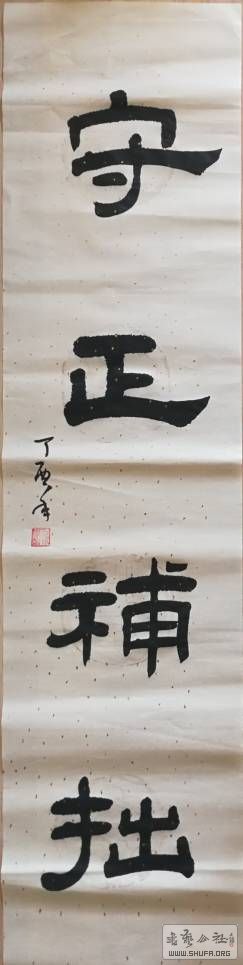 守正補拙
丁酉年
WWW.SHUFA.ORG